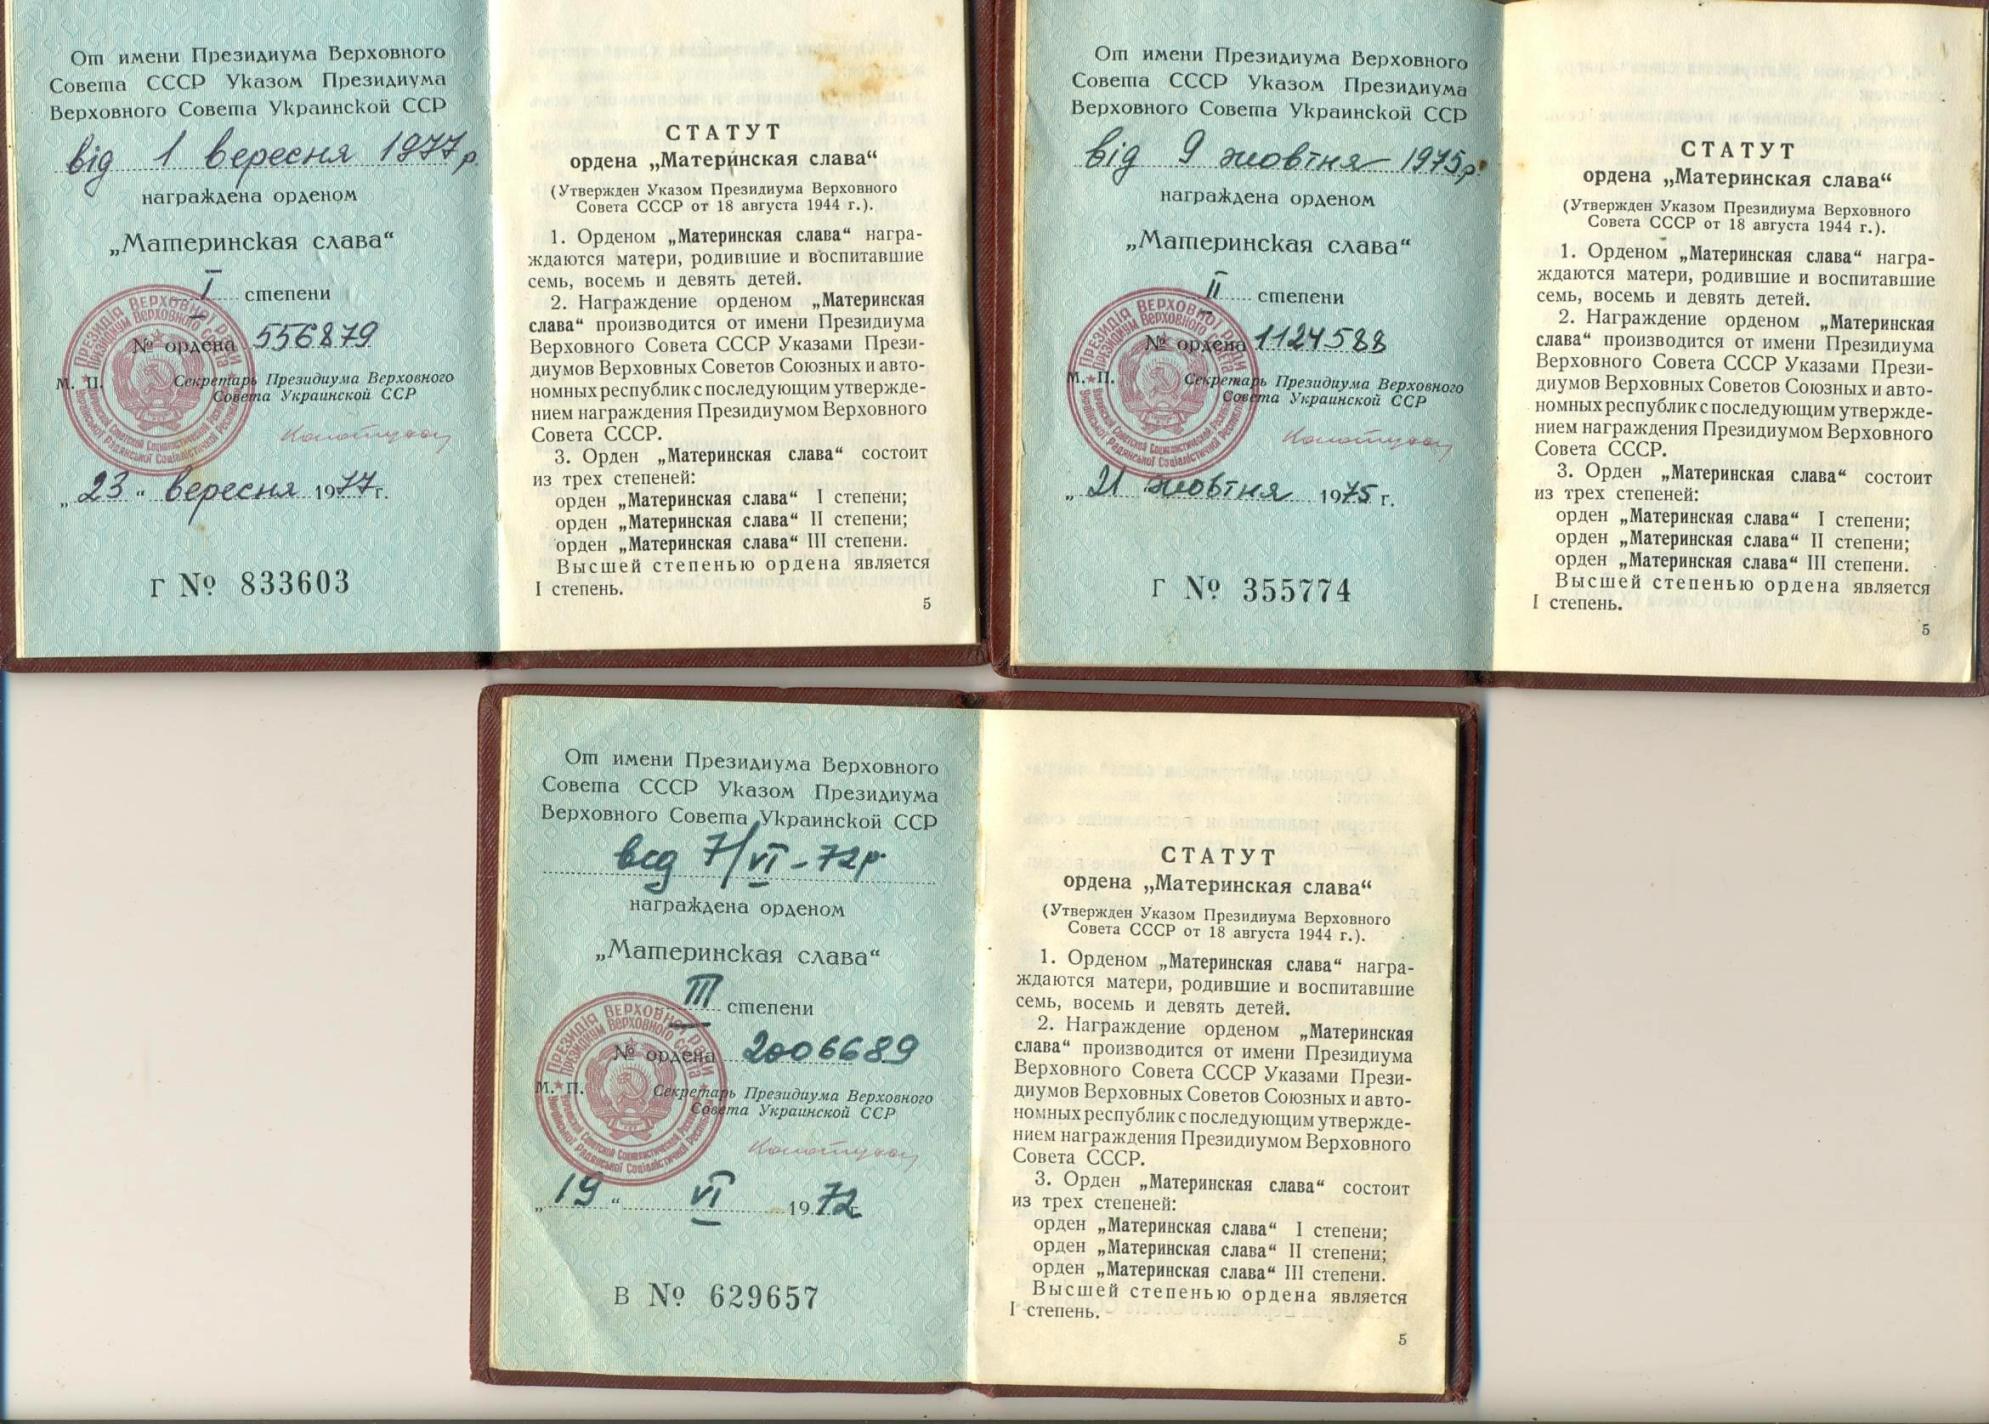 От имени Президиума Верховного
Совета СССР Указом Президиума
Верховного Совета Украинской ССР
від 1 вересня 1977 р.
награждена орденом
„Материнская слава“
I степени
№ ордена 556879
М. П. Секретарь Президиума Верховного
Совета Украинской ССР
„23“ вересня 1977 г.
Г № 833603
СТАТУТ
ордена „Материнская слава“
(Утвержден Указом Президиума Верховного
Совета СССР от 18 августа 1944 г.).
1. Орденом „Материнская слава“ награ-
ждаются матери, родившие и воспитавшие
семь, восемь и девять детей.
2. Награждение орденом „Материнская
слава“ производится от имени Президиума
Верховного Совета СССР Указами Прези-
диумов Верховных Советов Союзных и авто-
номных республик с последующим утвержде-
нием награждения Президиумом Верховного
Совета СССР.
3. Орден „Материнская слава“ состоит
из трех степеней:
орден „Материнская слава“ I степени;
орден „Материнская слава“ II степени;
орден „Материнская слава“ III степени.
Высшей степенью ордена является
I степень.
5
От имени Президиума Верховного
Совета СССР Указом Президиума
Верховного Совета Украинской ССР
від 9 жовтня 1975 р.
награждена орденом
„Материнская слава“
II степени
№ ордена 1124588
М. П. Секретарь Президиума Верховного
Совета Украинской ССР
„21 жовтня 1975 г.
Г № 355774
СТАТУТ
ордена „Материнская слава“
(Утвержден Указом Президиума Верховного
Совета СССР от 18 августа 1944 г.).
1. Орденом „Материнская слава“ награ-
ждаются матери, родившие и воспитавшие
семь, восемь и девять детей.
2. Награждение орденом „Материнская
слава“ производится от имени Президиума
Верховного Совета СССР Указами Прези-
диумов Верховных Советов Союзных и авто-
номных республик с последующим утвержде-
нием награждения Президиумом Верховного
Совета СССР.
3. Орден „Материнская слава“ состоит
из трех степеней:
орден „Материнская слава“ I степени;
орден „Материнская слава“ II степени;
орден „Материнская слава“ III степени.
Высшей степенью ордена является
I степень.
5
От имени Президиума Верховного
Совета СССР Указом Президиума
Верховного Совета Украинской ССР
від 7/VI-72р.
награждена орденом
„Материнская слава“
III степени
№ ордена 2006689
М. П. Секретарь Президиума Верховного
Совета Украинской ССР
„19“ VI 1972 г.
В № 629657
СТАТУТ
ордена „Материнская слава“
(Утвержден Указом Президиума Верховного
Совета СССР от 18 августа 1944 г.).
1. Орденом „Материнская слава“ награ-
ждаются матери, родившие и воспитавшие
семь, восемь и девять детей.
2. Награждение орденом „Материнская
слава“ производится от имени Президиума
Верховного Совета СССР Указами Прези-
диумов Верховных Советов Союзных и авто-
номных республик с последующим утвержде-
нием награждения Президиумом Верховного
Совета СССР.
3. Орден „Материнская слава“ состоит
из трех степеней:
орден „Материнская слава“ I степени;
орден „Материнская слава“ II степени;
орден „Материнская слава“ III степени.
Высшей степенью ордена является
I степень.
5